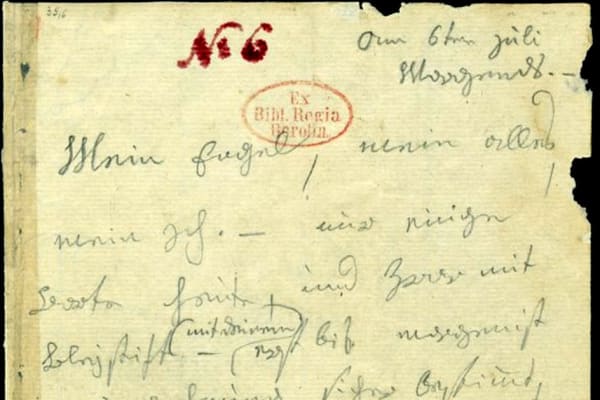 35,6
No 6
am 6ten juli
Morgends. —
Ex
Bibl. Regia
Berolin.
Mein Engel, mein alles,
mein Ich. — nur einige
Worte heute, und zwar mit
Bleystift — (mit deinem) erst bis morgen ist
sicher bestimmt,